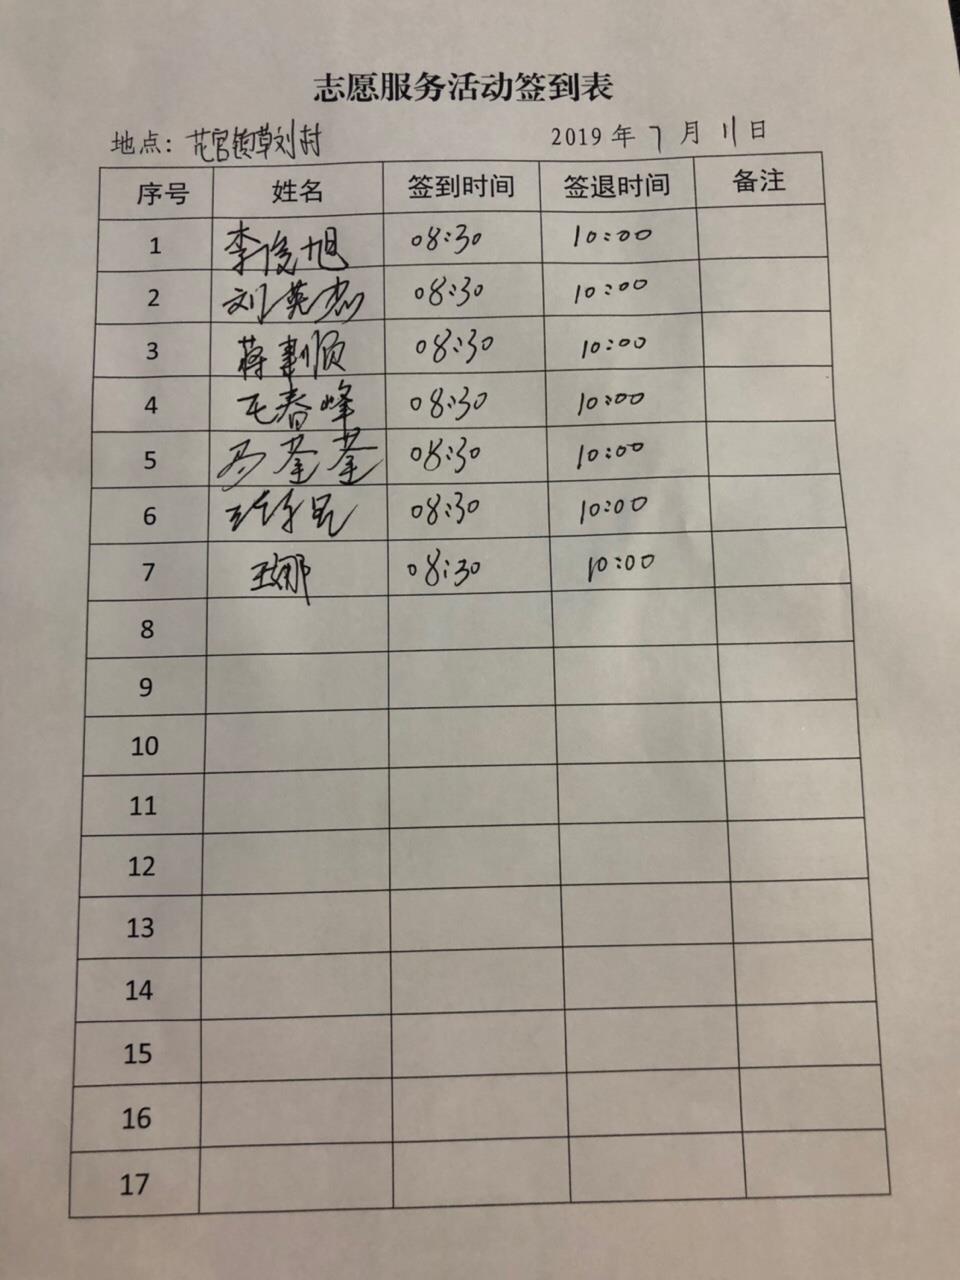 志愿服务活动签到表
地点：花官镇草刘村 2019年7月11日
序号 姓名 签到时间 签退时间 备注
1 李俊旭 08:30 10:00
2 刘英杰 08:30 10:00
3 蒋 顺 08:30 10:00
4 毛春峰 08:30 10:00
5 08:30 10:00
6 08:30 10:00
7 王娜 08:30 10:00
8
9
10
11
12
13
14
15
16
17